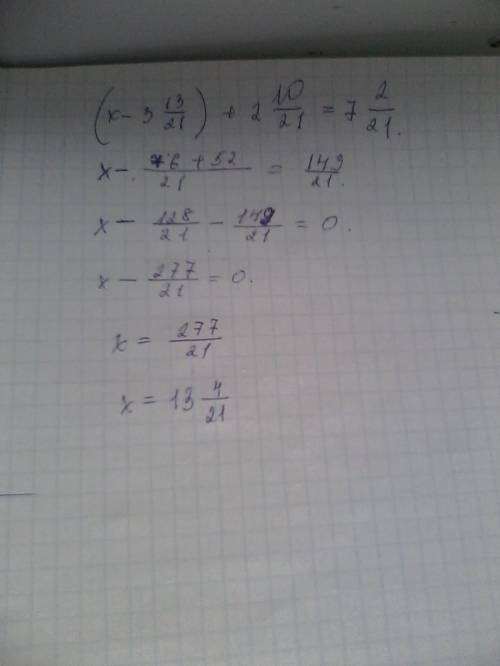 (x - 3 13/21) + 2 10/21 = 7 2/21.
x - 76 + 52/21 = 149/21.
x - 128/21 - 149/21 = 0.
x - 277/21 = 0.
x = 277/21
x = 13 4/21